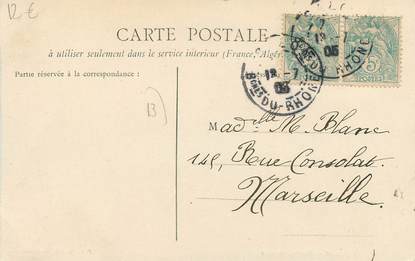 12 €
CARTE POSTALE
à utiliser seulement dans le service intérieur (France, Algér
Partie réservée à la correspondance :
B
Bches DU-RHÔNE
RHÔNE
5c
POSTES
Mad elle M. Blanc
145, Rue Consolat.
Marseille.